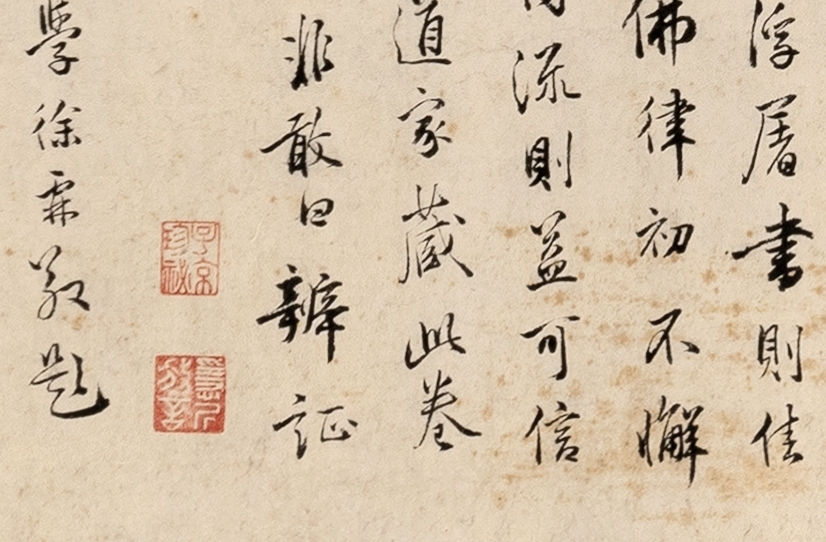 浮屠書則佳
佛律初不懈
流則益可信
道家蔵此卷
非敢曰辨証
學徐霖敬題
子京珍祕